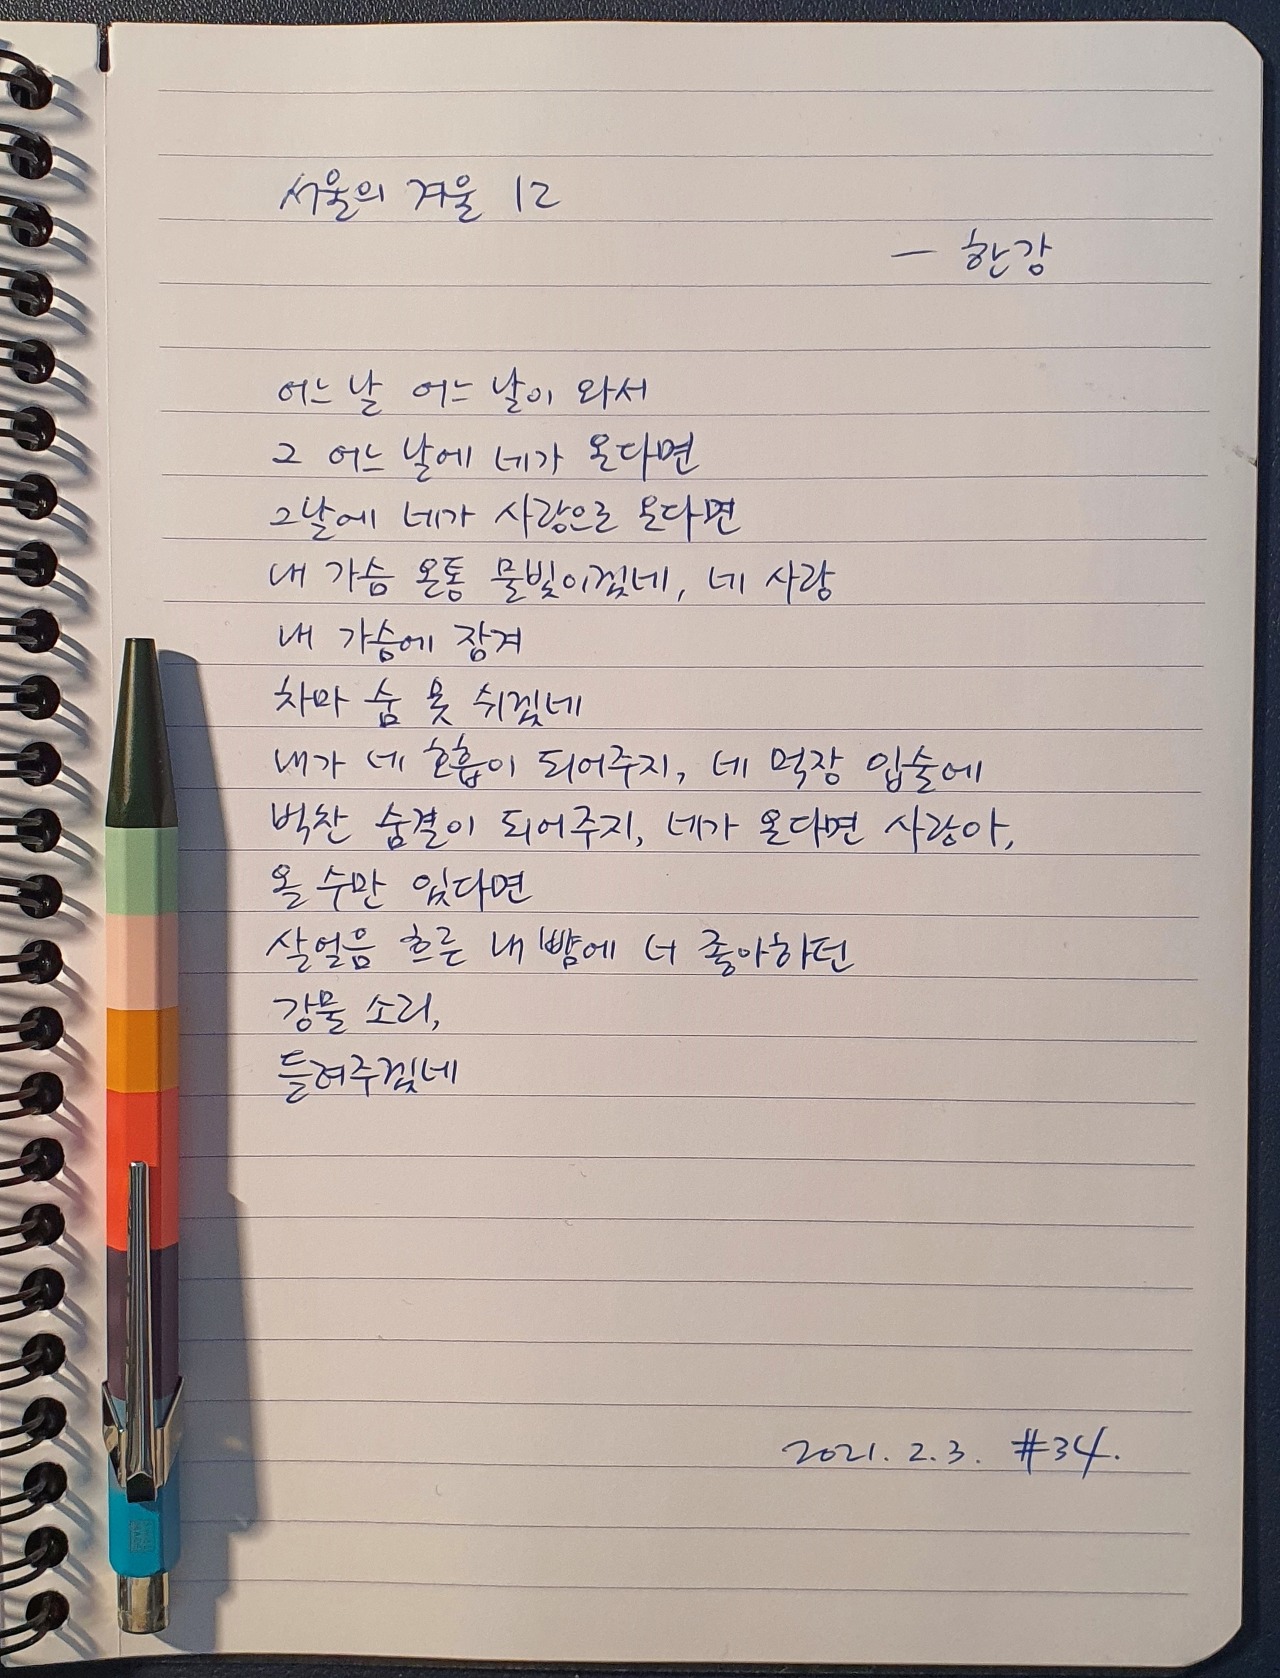 서울의 겨울 12
— 한강
어느 날 어느 날이 와서
그 어느 날에 네가 온다면
그날에 네가 사랑으로 온다면
내 가슴 온통 물빛이겠네, 네 사랑
내 가슴에 잠겨
차마 숨 못 쉬겠네
내가 네 호흡이 되어주지, 네 먹장 입술에
벅찬 숨결이 되어주지, 네가 온다면 사랑아,
올 수만 있다면
살얼음 흐른 내 뺨에 너 좋아하던
강물 소리,
들려주겠네
2021. 2. 3. #34.